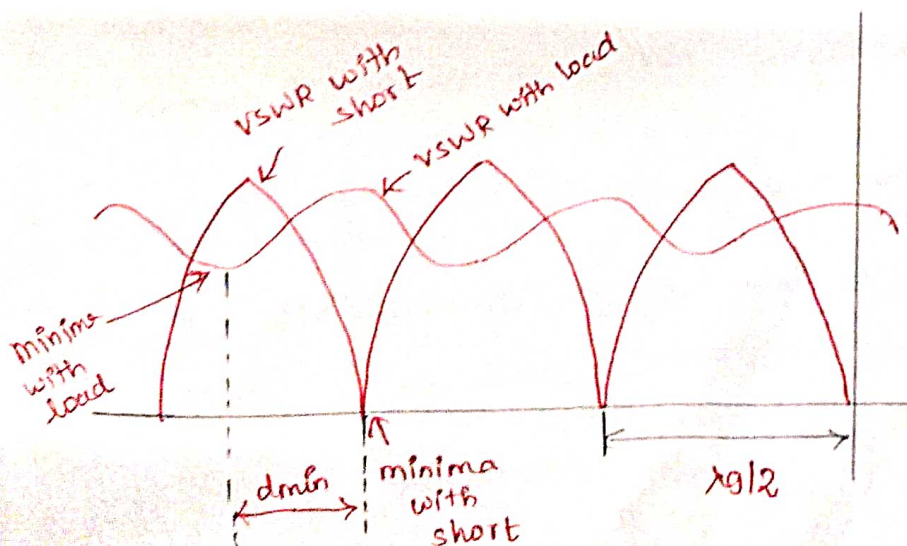 VSWR with
short
VSWR with load
minima
with
load
dmin
minima
with
short
λg/2